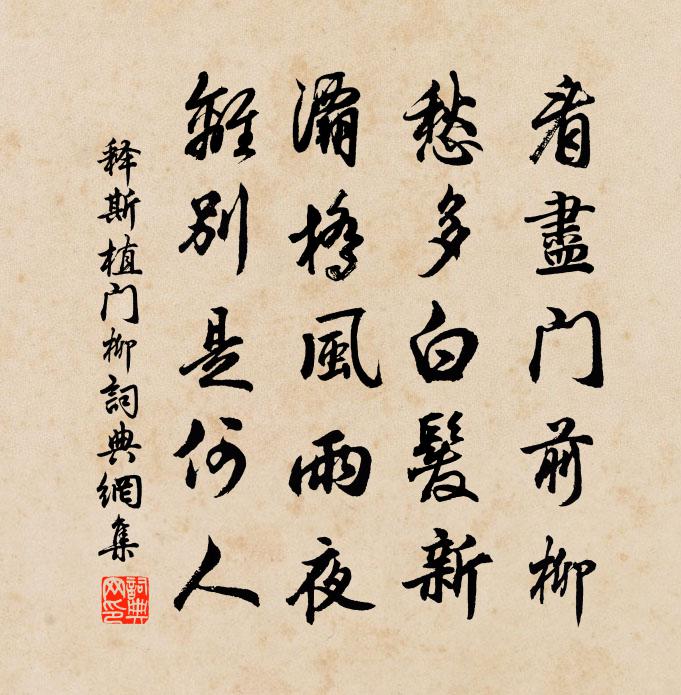 看盡門前柳
愁多白髮新
灞橋風雨夜
離別是何人
释斯植门柳詞典網集
詞典网印